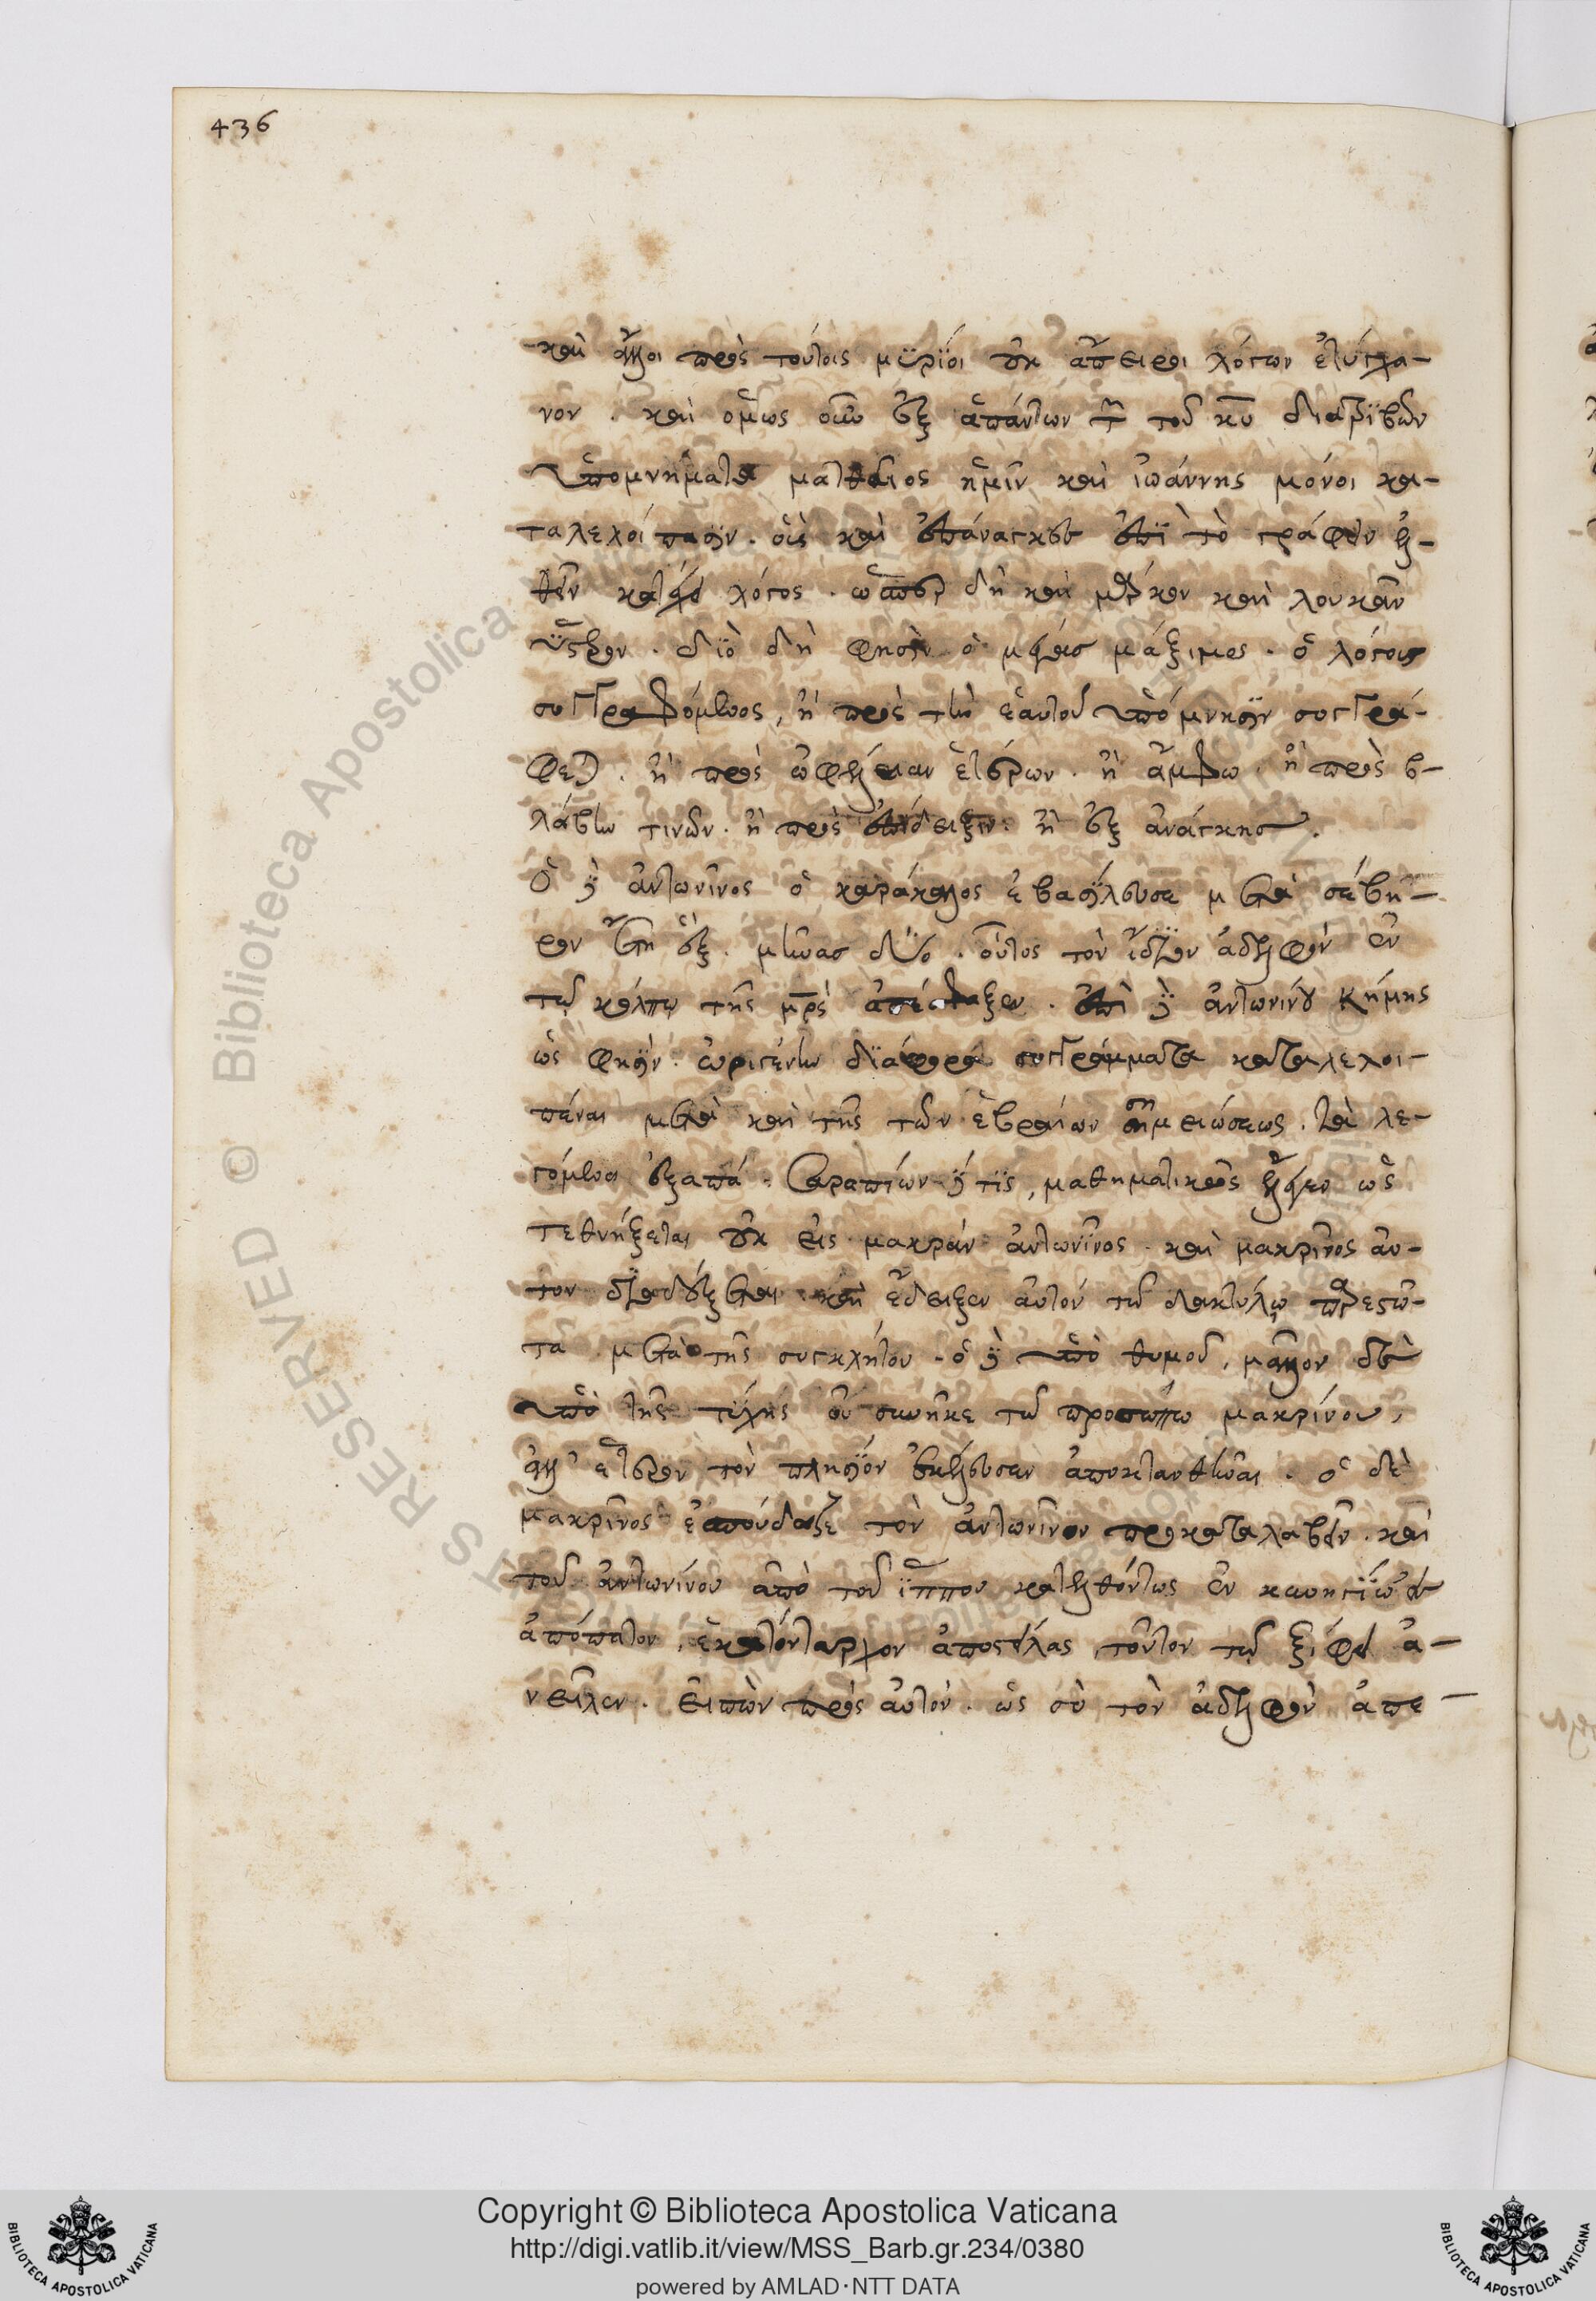 436
καὶ ἄλλοι πρὸς τούτοις μϋρϊοι οὐκ ἄπειροι λόγων ἐτύγχα-
νον. καὶ ὅμως οὖν ἐξ ἁπάντων τῶν τοῦ κυ διατρϊβῶν
ὑπομνήματα ματθαῖος ἡμῖν καὶ ϊωάννης μόνοι κα-
ταλελοίπασϊν. οἷς καὶ ἐπάναγκες ἐπὶ τὸ γράφειν ἐλ-
θεῖν κατέχει λόγος. ὥσπερ δὴ καὶ μάρκον καὶ λουκᾶν
ὕστερον. διὸ δὴ φησὶν ὁ μέγας μάξιμος. ὁ λόγους
συγγραφόμενος, ἢ πρὸς τὴν ἑαυτοῦ ὑπόμνησϊν συγγρά-
φεται. ἢ πρὸς ὠφέλειαν ἑτέρων. ἢ ἄμφω. ἢ πρὸς β-
λάβην τινῶν. ἢ πρὸς ἐπίδειξιν. ἢ ἐξ ἀνάγκης.
Ὁ δὲ ἀντωνῖνος ὁ καράκαλος ἐβασίλευσε μετὰ σέβη-
ρον ἔτη ἓξ. μῆνας δύο. οὗτος τὸν ἴδιον ἀδελφὸν ἐν
τῷ κόλπῳ τῆς μρς ἀπέσφαξεν. ἐπὶ δὲ ἀντωνίνου κλήμης
ὥς φησϊν. ὠριγένην διάφορα συγγράμματα καταλελοι-
πέναι μετὰ καὶ τῆς τῶν ἑβραίων σημειώσεως. τὰ λε-
γόμενα ἑξαπλᾶ. Σαραπίων δέ τϊς, μαθηματικὸς ἔλεγεν ὡς
τεθνήξεται οὐκ εἰς μακρὰν ἀντωνῖνος. καὶ μακρῖνος αὐ-
τὸν διαδέξεται. καὶ ἔδειξεν αὐτὸν τῷ δακτύλῳ παρεστῶ-
τα μετὰ τῆς συγκλήτου. ὁ δὲ ὑπὸ θυμοῦ, μᾶλλον δὲ
ὑπὸ τῆς τύχης οὐ συνῆκε τῷ προσώπω μακρίνου,
ἀλλ' ἕτερον τὸν πλησίον ἐκέλευσεν ἀποκτανθῆναι. ὁ δὲ
μακρῖνος ἐσπούδαζε τὸν ἀντωνῖνον προκαταλαβεῖν. καὶ
τοῦ ἀντωνίνου ἀπὸ τοῦ ἵππου κατελθόντως ἐν
ἀπόπατον, ἑκατόνταρχον ἀποστείλας, τοῦτον τῷ ξίφει ἀ-
νεῖλεν. εἰπὼν πρὸς αὐτόν. ὡς σὺ τὸν ἀδελφὸν ἀπε-
Copyright © Biblioteca Apostolica Vaticana
http://digi.vatlib.it/view/MSS_Barb.gr.234/0380
powered by AMLAD·NTT DATA